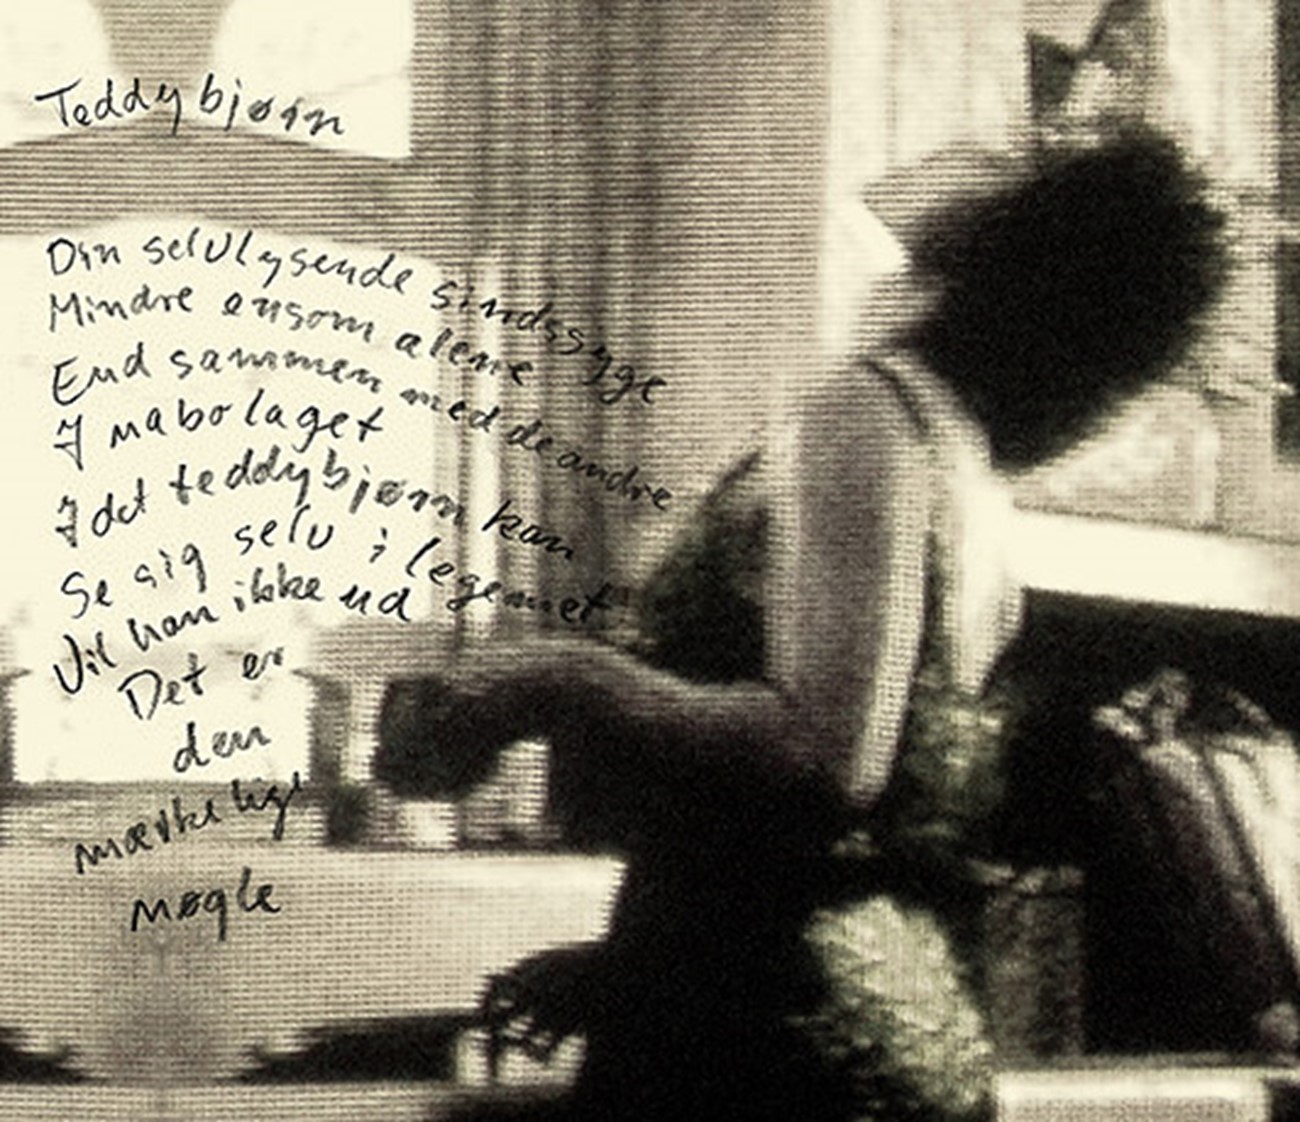 Teddybjørn
Din selvlysende sindssyge
Mindre ensom alene
End sammen med de andre
I nabolaget
I det teddybjørn kan
Se sig selv i legemet
Vil han ikke ud
Det er
den
mærkelige
nøgle